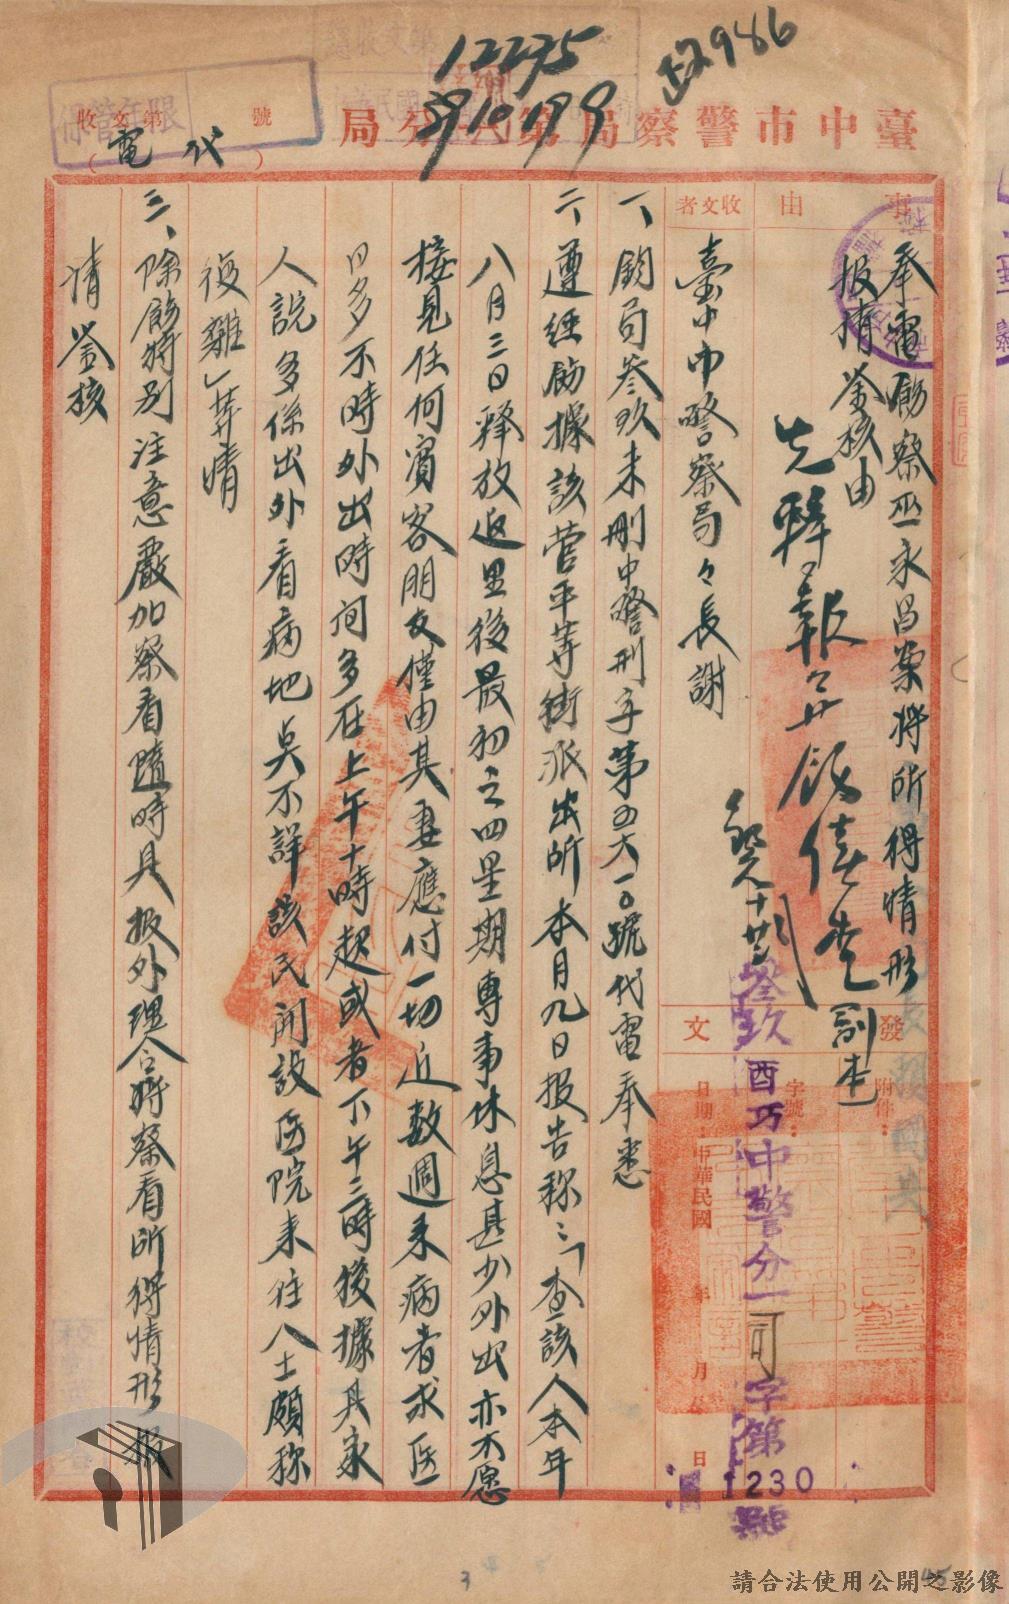 12275
39 10 19 9
臺中市警察局第一分局
(代電)
收文第 號
保管年限
事由
奉電飭察巫永昌案將所得情形
报请鉴核由
先轉報
收文者
臺中市警察局々長謝
發文
附件:
字號:
日期:中華民國 年 月 日
叁玖酉巧中警分一可字第1230號
一、鈞局叁玖未刪中警刑字第四六一〇號代電奉悉
二、遵經飭據該管平等街派出所本月九日报告称:「查該人本年
八月三日释放返里後最初之四星期專事休息甚少外出亦不愿
接見任何賓客朋友僅由其妻應付一切近数週来病者求医
日多不時外出時间多在上午十時起或者下午三時後據其家
人說多係出外看病地点不詳該民開設医院来往人士頗称
複雜」等情
三、除飭特別注意嚴加察看隨時具报外理合將察看所得情形报
请鉴核
45
請合法使用公開之影像